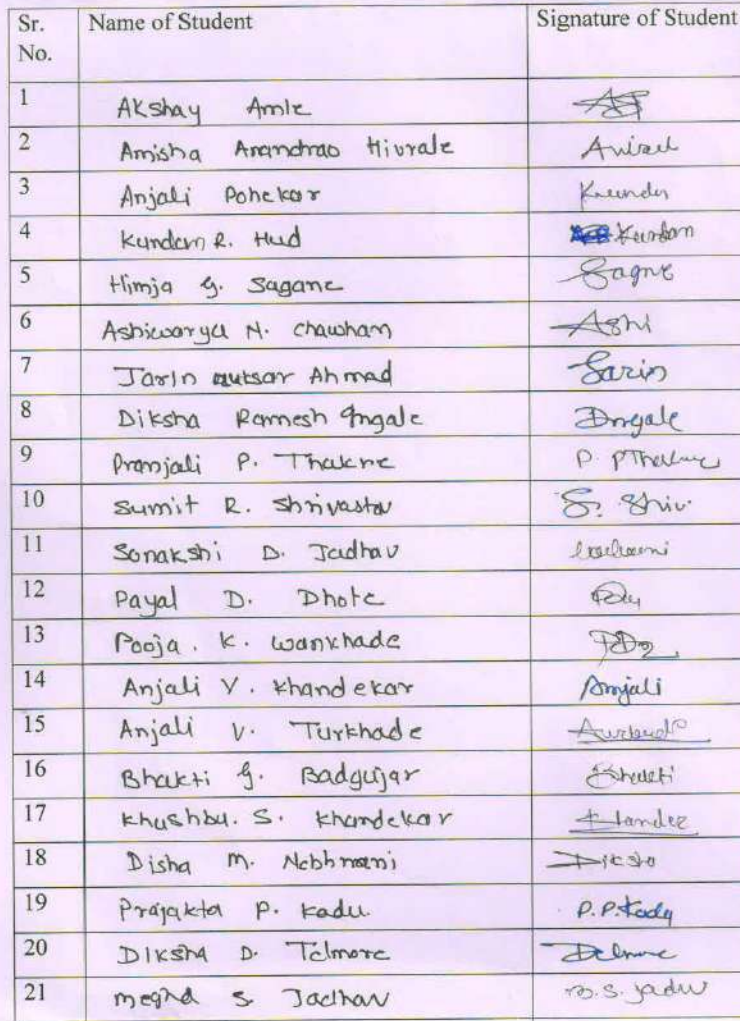 Sr. No. Name of Student Signature of Student
1 Akshay Amle
2 Amisha Anandrao Hivrale
3 Anjali Pohekar
4 Kundan R. Hud Kundan
5 Himja G. Sagane Sagne
6 Ashiwarya N. Chawhan Ashi
7 Jarin Ahmad Sarin
8 Diksha Ramesh Ingale Dingale
9 Pranjali P. Thakre P. P Thakre
10 Sumit R. Shrivastav S. Shriv.
11 Sonakshi D. Jadhav
12 Payal D. Dhote
13 Pooja. K. Wankhade
14 Anjali V. Khandekar Anjali
15 Anjali V. Turkhade
16 Bhakti G. Badgujar Bhakti
17 Khushbu. S. Khandekar
18 Disha M. Nebhnani
19 Prajakta P. Kadu. P.P. Kadu
20 Diksha D. Telmore
21 Megha S. Jadhav